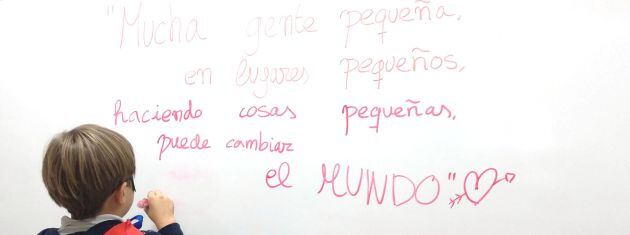 "Mucha gente pequeña,
en lugares pequeños,
haciendo cosas pequeñas,
puede cambiar
el MUNDO"